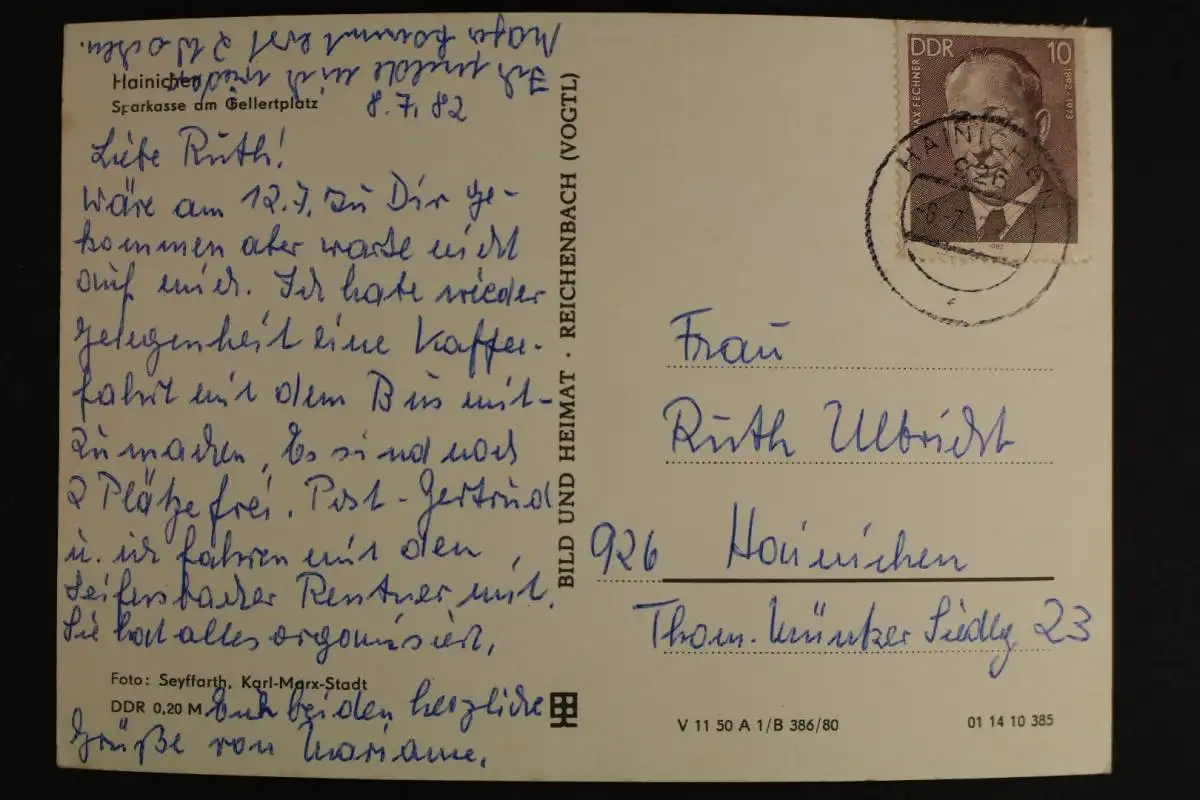 Hainichen
Sparkasse am Gellertplatz
8.7.82
Liebe Ruth!
Wäre am 12.7. zu Dir ge-
kommen aber warte nicht
auf mich. Ich habe wieder
Gelegenheit eine Kaffee-
fahrt mit dem Bus mit-
zumachen, Es sind noch
2 Plätze frei. Post-Gertrud
u. ich fahren mit den
Seifersbacher Rentner mit.
Sie hat alles organisiert.
Foto: Seyffarth, Karl-Marx-Stadt
DDR 0,20 M
Euch beiden herzliche
Grüße von Marianne.
Ich melde mich wieder
kommt erst 2 Wochen.
BILD UND HEIMAT · REICHENBACH (VOGTL)
DDR 10
MAX FECHNER
1892-1973
1982
HAINICHEN
926
Frau
Ruth Ulbricht
926 Hainichen
Thom. Müntzer Siedlg 23
V 11 50 A 1/B 386/80
01 14 10 385